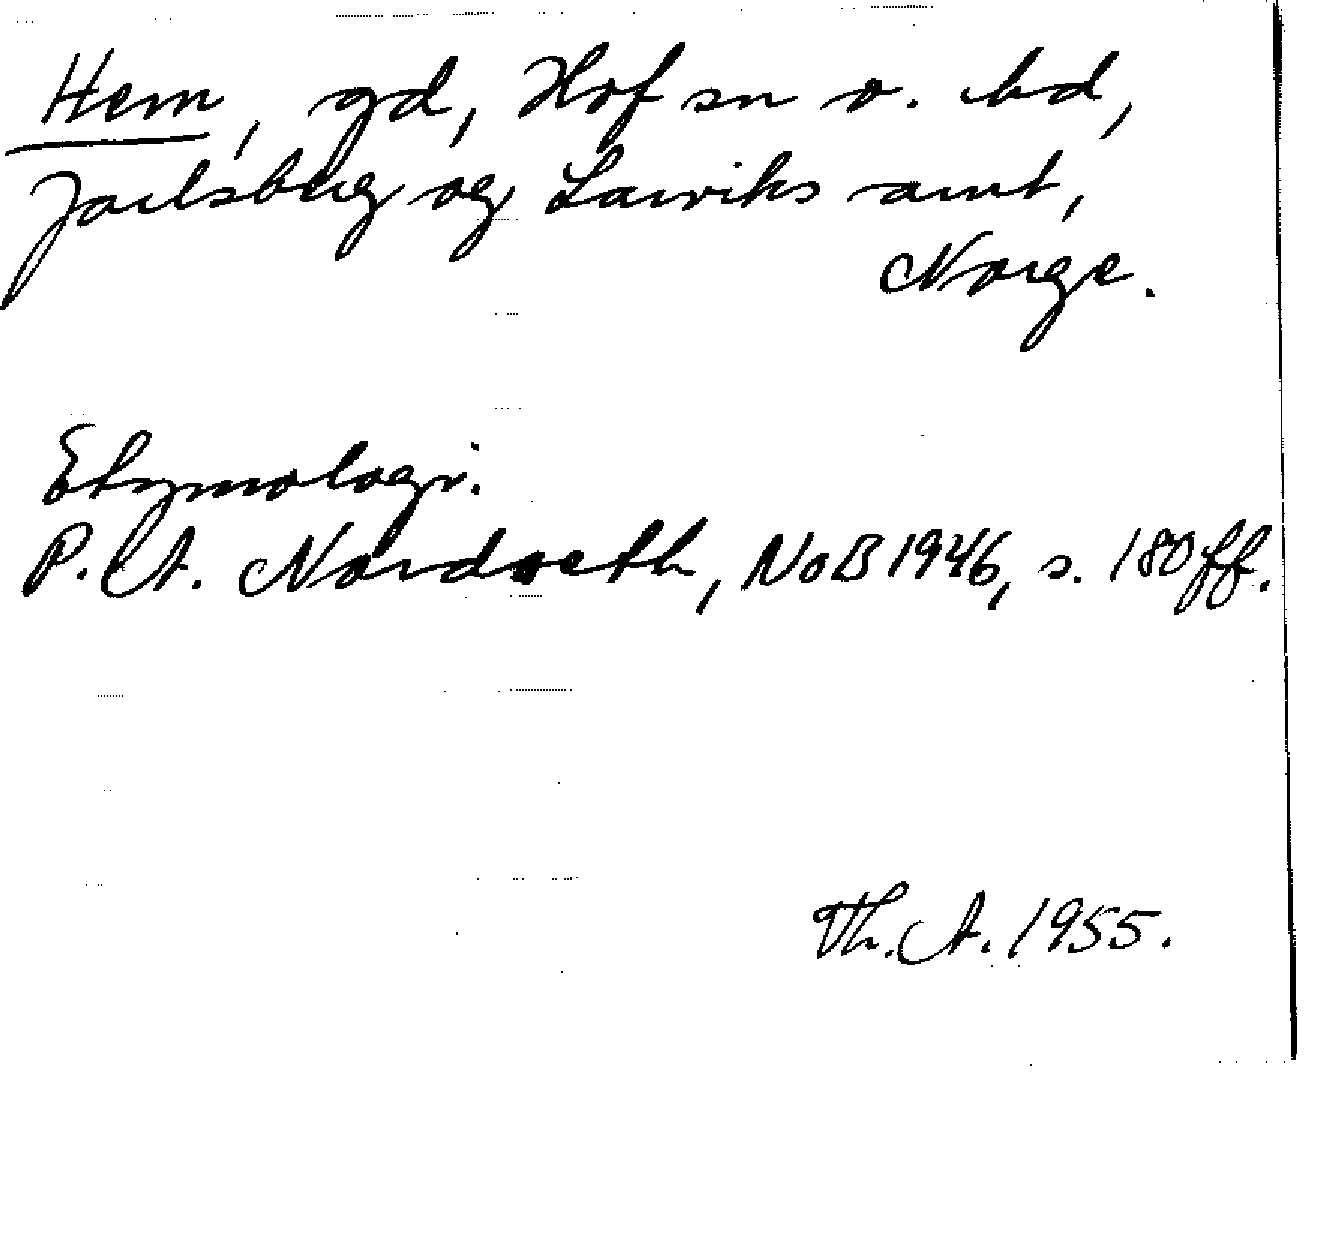 Hem, gd, Hof sn o. hd,
Jarlsberg og Larviks amt,
Norge.
Etymologi:
P. A. Nordseth, NoB 1946, s. 180 ff.
Th. A. 1955.